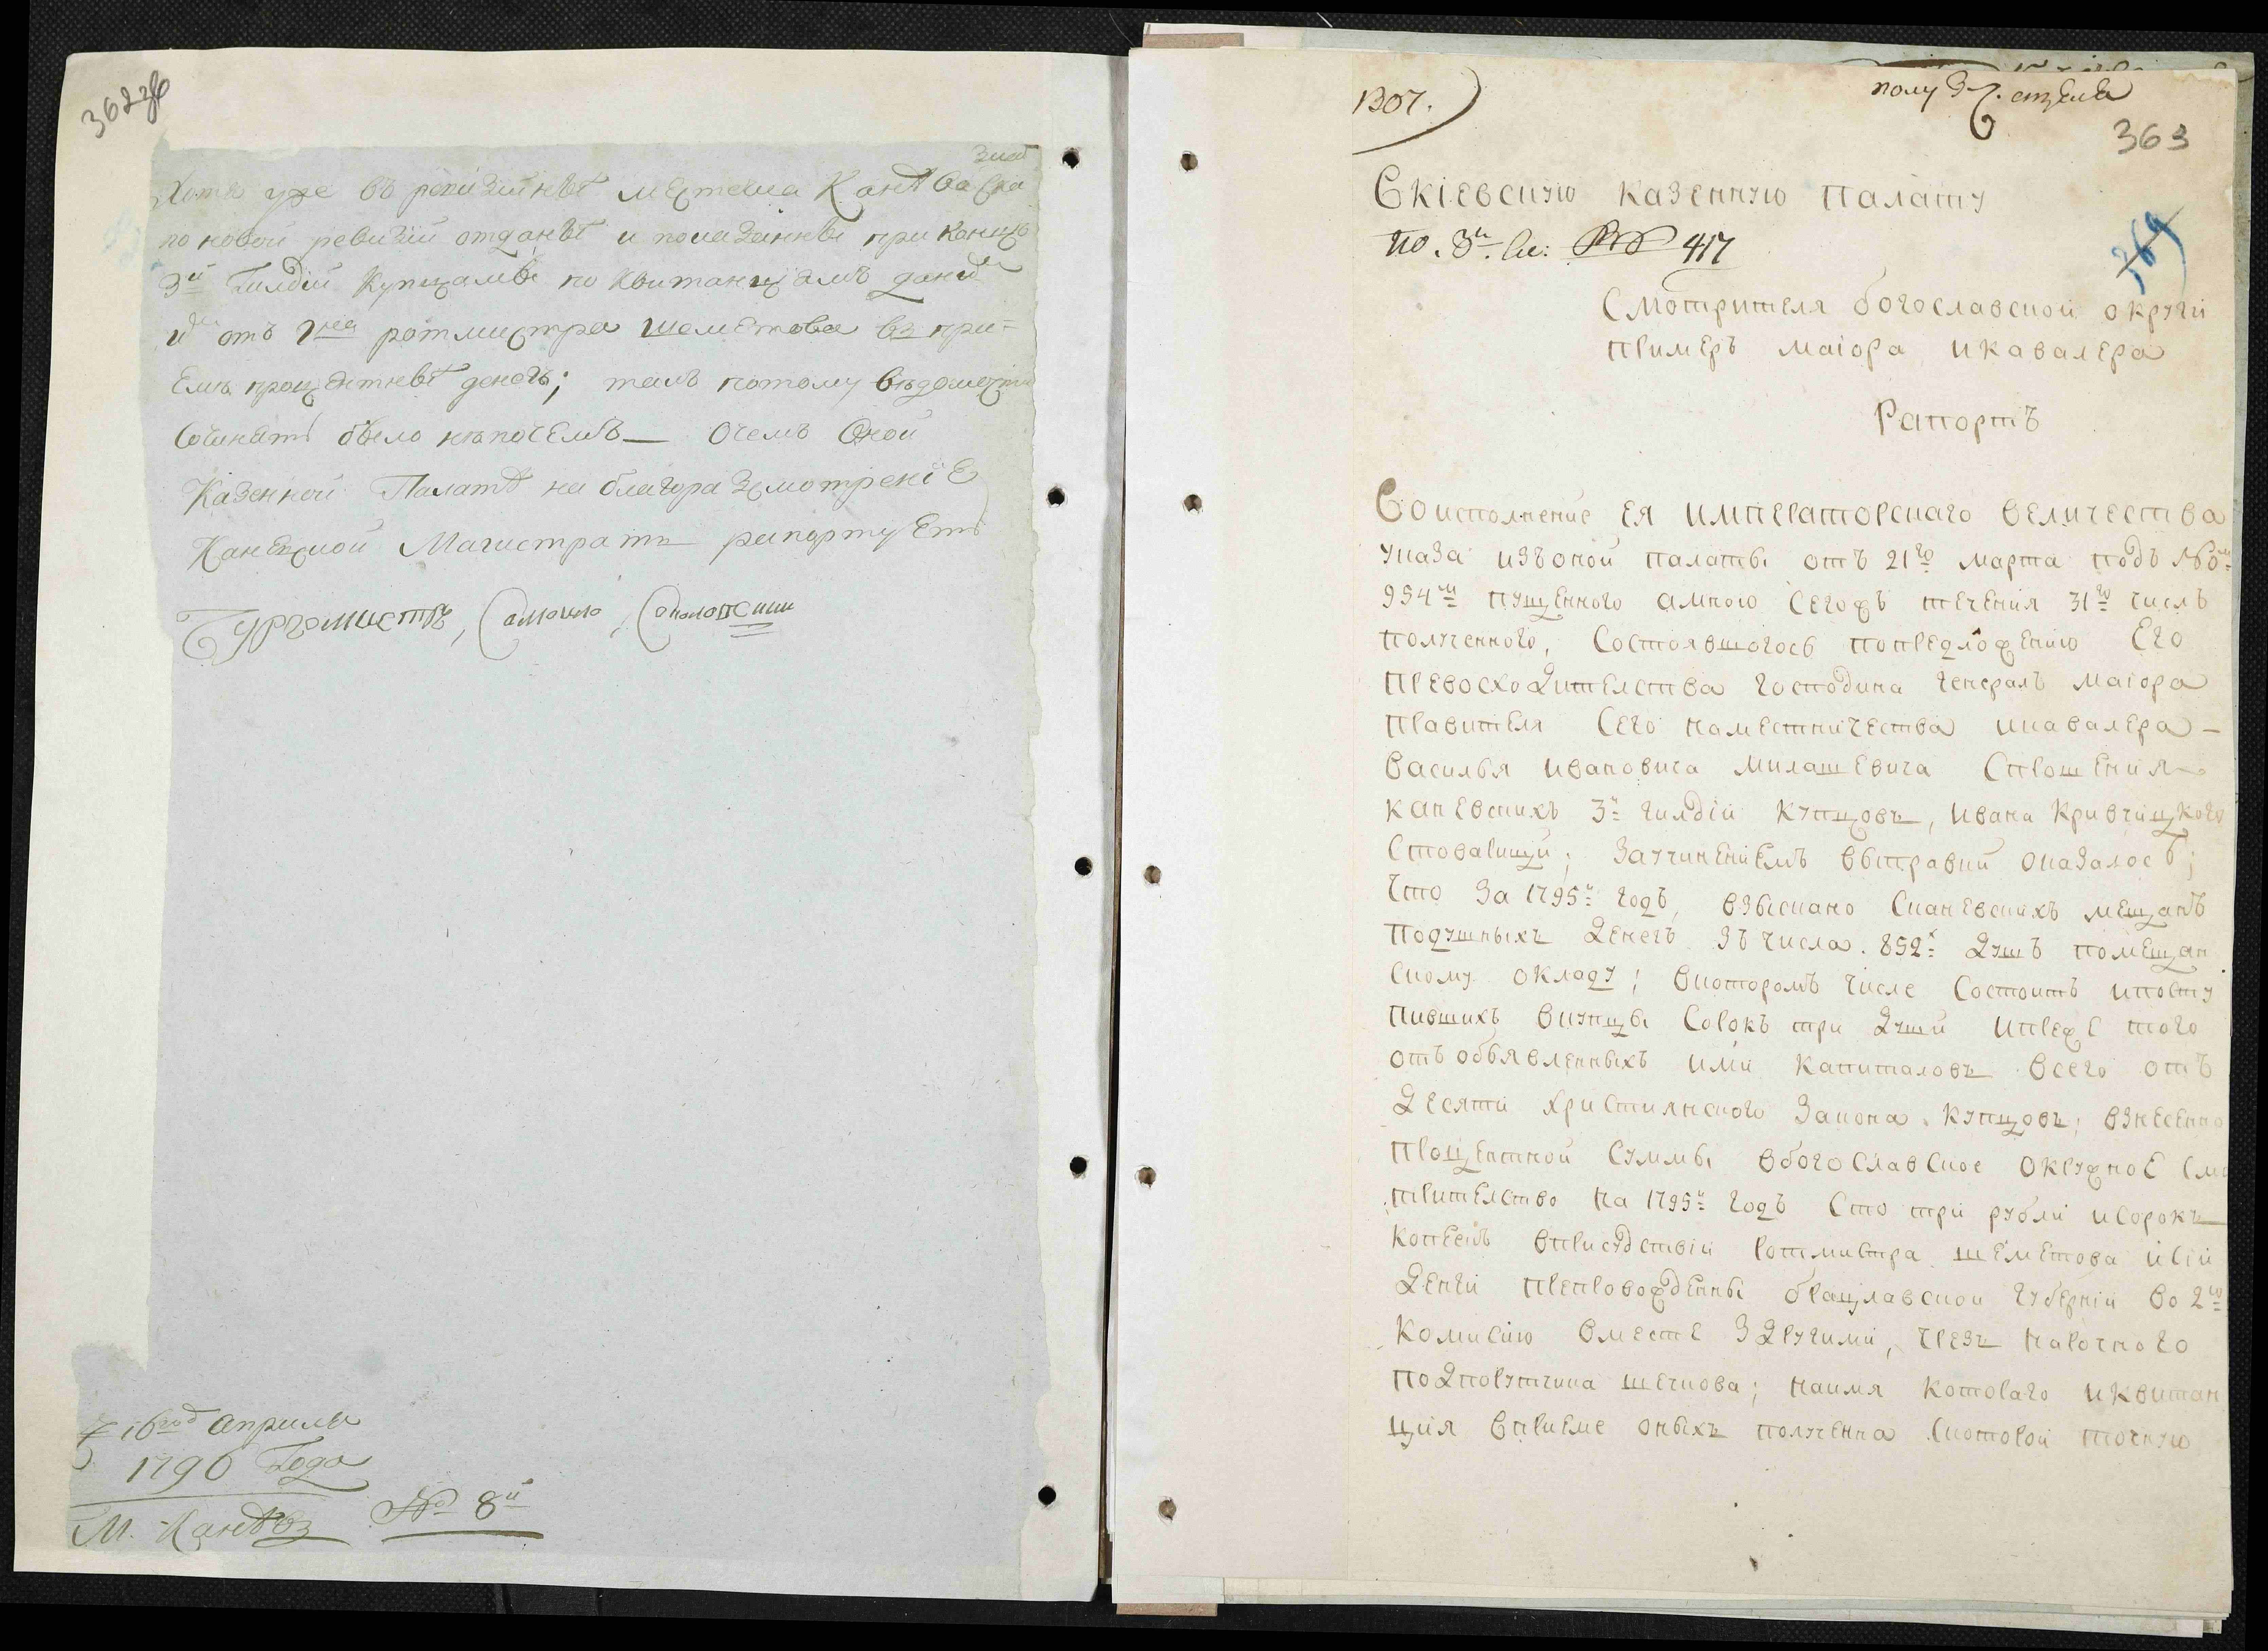 362зв
Хотя уже въ ревизийныхъ местечка Канева ска
по новой ревизии отданы и показанные при концѣ
3й Гилдии Купцами по квитанциямъ данн
отъ Гна ротмистра Шеметова въ при=
емѣ процентныхъ денегъ; такъ потому вѣдомости
Сочинять было не почемъ— Очемъ Оной
Казенной Палатѣ на благоразсмотрение
Каневской Магистратъ рапортуетъ
Бургомистръ, Самойло,
16го апреля
1796 Года
М. Канѣвъ № 8й
1307.
363
364
Вкиевскую казенную палату
по. 3й 417
Смотрителя богославской округи
примеръ маиора икавалера
Рапортъ
Воисполнение ея императорского величества
указа изъоной палаты отъ 21го марта подъ №омъ
954м пущенного амною сегожъ течения 31го числъ
полученного, состоявшогось попредложению Его
превосходителства господина генералъ маиора
правителя сего наместничества икавалера —
василья ивановича милашевича спрошения
каневскихъ 3й гилдии купцовъ, ивана Кривчицкого
стоварищи; заучинениемъ выправки оказалось;
что за 1795й годъ, взыскано сканевскихъ мещанъ
подушныхъ денегъ зъ числа. 852х душъ помещан
скому окладу; вкоторомъ числе состоитъ ипосту
пившихъ вкупцы сорокъ три души ипреже того
отъ объявленныхъ ими капиталовъ всего отъ
десяти християнского закона купцовъ; взнесенно
процентной суммы вбогославское окружное смо
трителство на 1795й годъ сто три рубли исорокъ
копеекъ вприсудствии ротмистра шеметова исии
денги препровожденны брацлавской губернии во 2ю
комисию вместе здругими, чрезъ нарочного
подпорутчика шечкова; наимя которого иквитан
ция вприеме оныхъ полученна скоторой точную